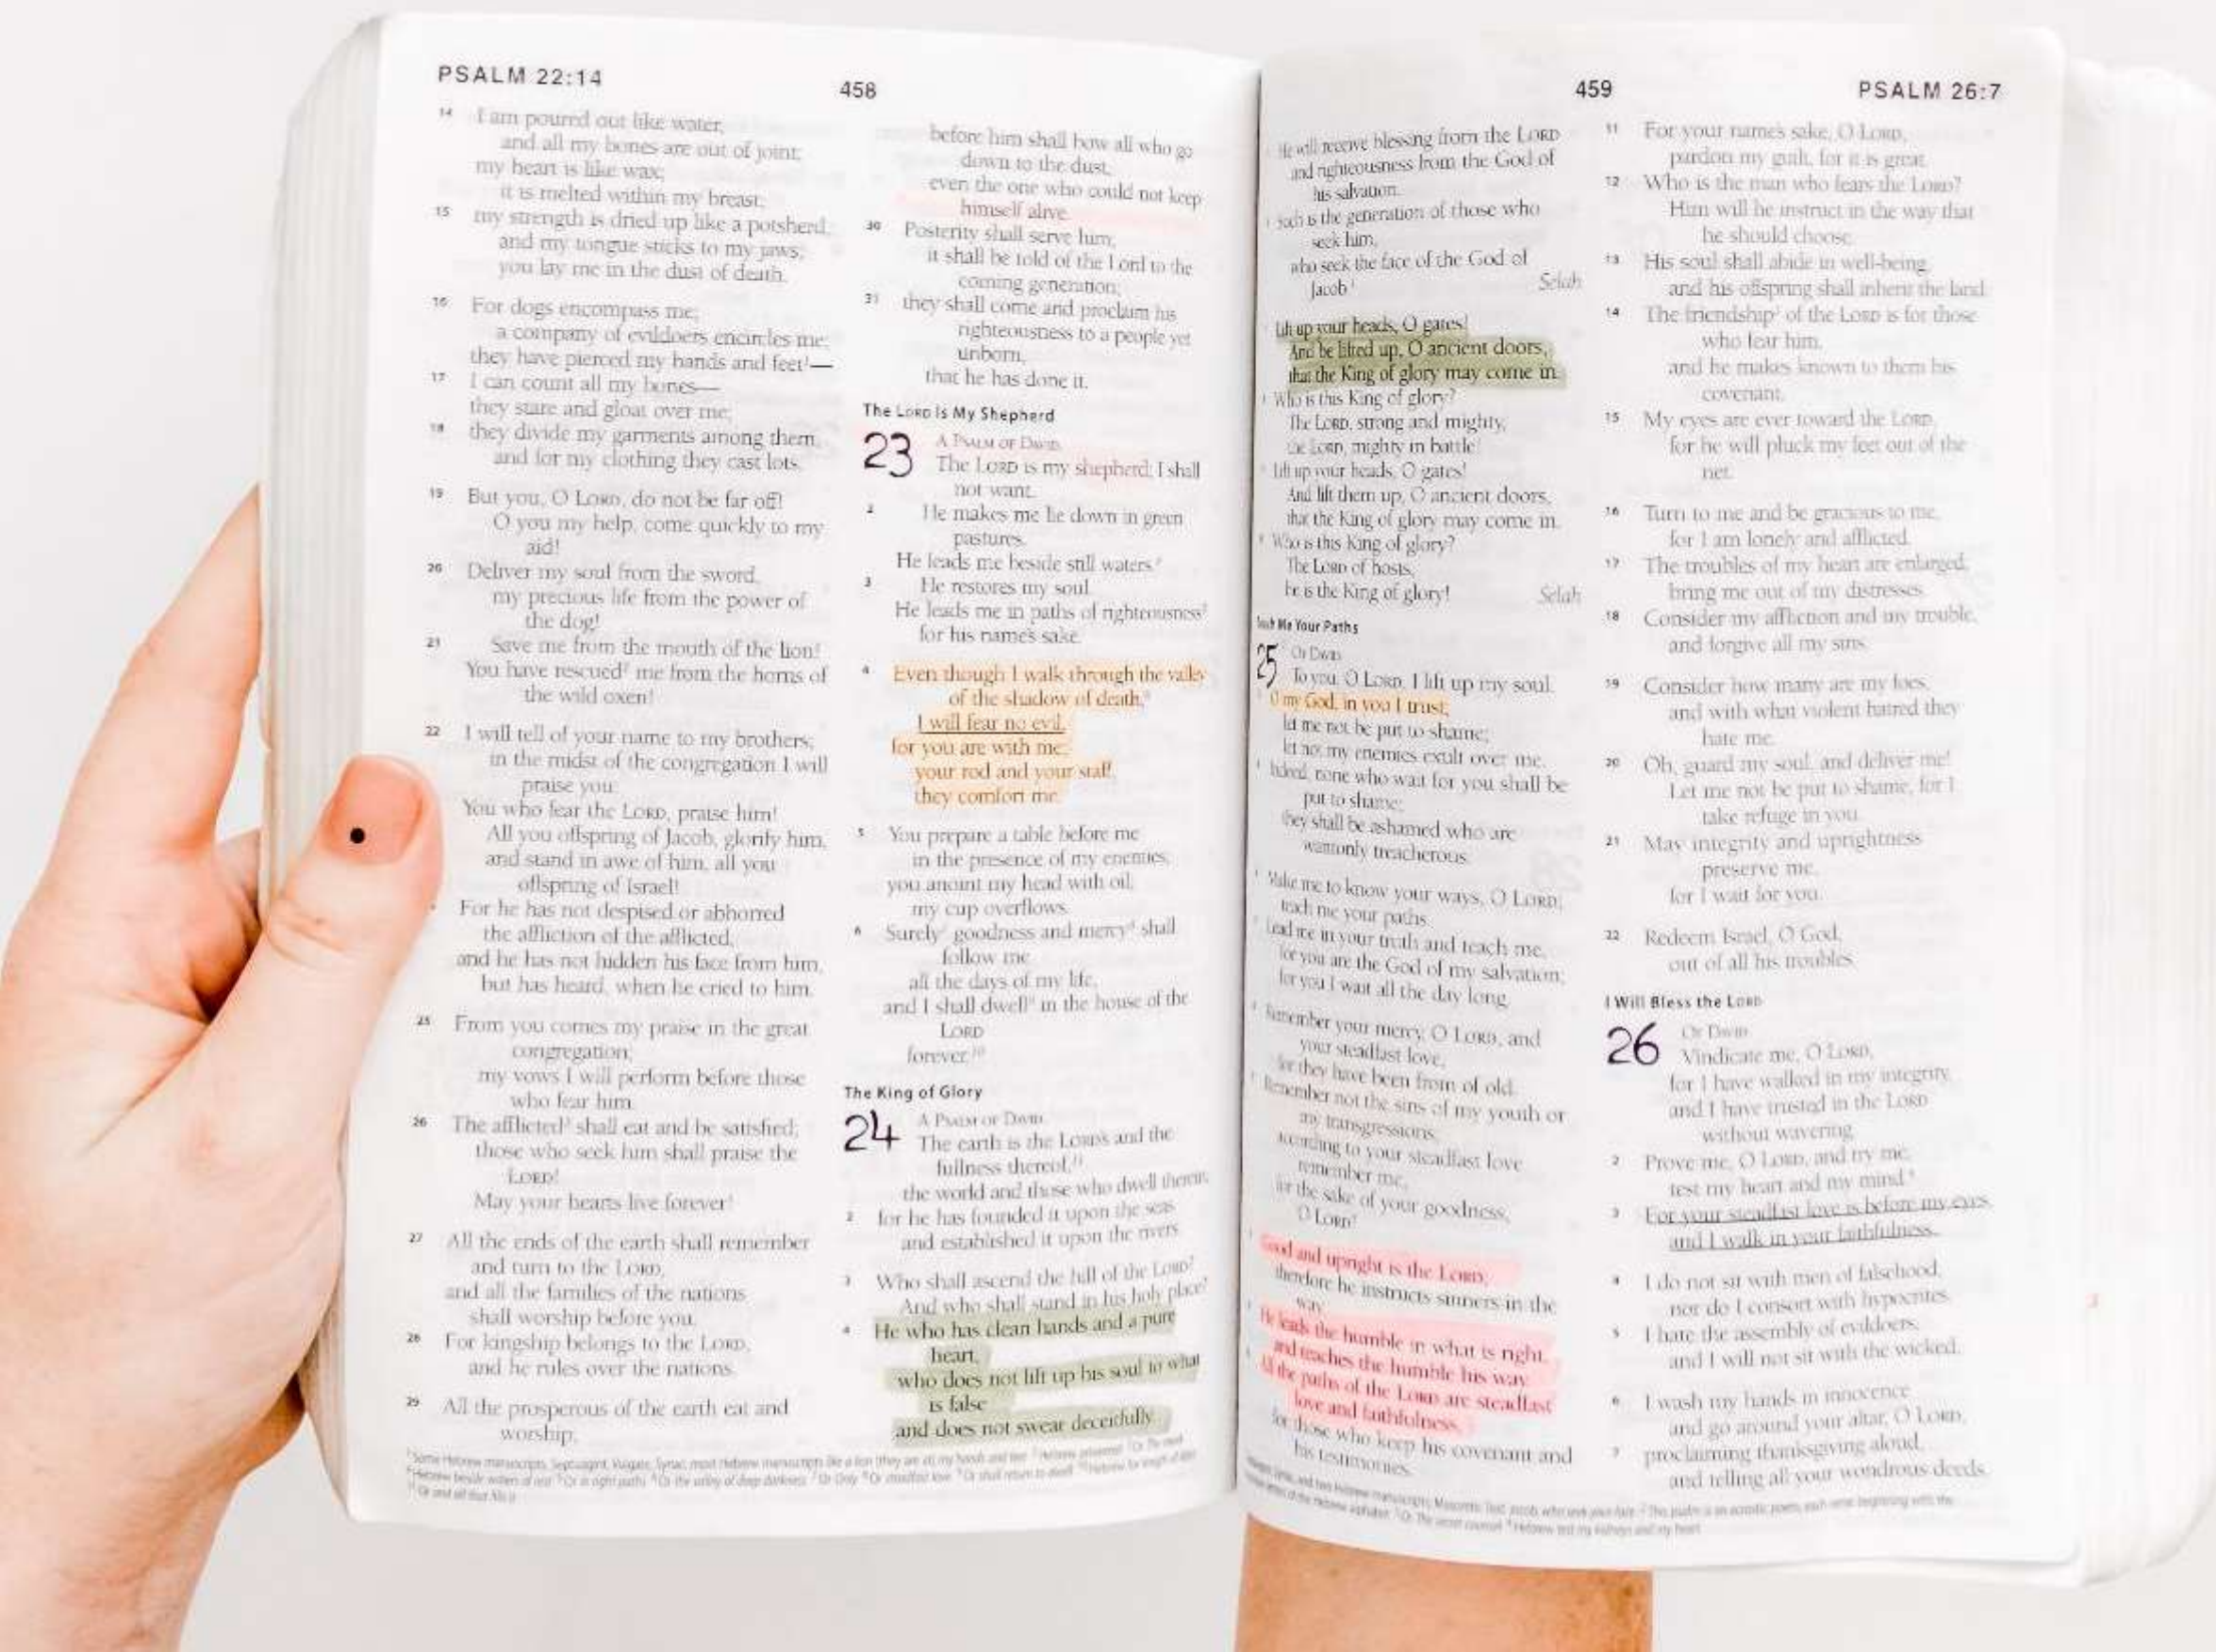 PSALM 22:14
458
14 I am poured out like water,
and all my bones are out of joint;
my heart is like wax;
it is melted within my breast;
15 my strength is dried up like a potsherd,
and my tongue sticks to my jaws;
you lay me in the dust of death.
16 For dogs encompass me;
a company of evildoers encircles me;
they have pierced my hands and feet¹—
17 I can count all my bones—
they stare and gloat over me;
18 they divide my garments among them,
and for my clothing they cast lots.
19 But you, O LORD, do not be far off!
O you my help, come quickly to my
aid!
20 Deliver my soul from the sword,
my precious life from the power of
the dog!
21 Save me from the mouth of the lion!
You have rescued² me from the horns of
the wild oxen!
22 I will tell of your name to my brothers;
in the midst of the congregation I will
praise you:
You who fear the LORD, praise him!
All you offspring of Jacob, glorify him,
and stand in awe of him, all you
offspring of Israel!
For he has not despised or abhorred
the affliction of the afflicted,
and he has not hidden his face from him,
but has heard, when he cried to him.
25 From you comes my praise in the great
congregation;
my vows I will perform before those
who fear him.
26 The afflicted³ shall eat and be satisfied;
those who seek him shall praise the
LORD!
May your hearts live forever!
27 All the ends of the earth shall remember
and turn to the LORD,
and all the families of the nations
shall worship before you.
28 For kingship belongs to the LORD,
and he rules over the nations.
29 All the prosperous of the earth eat and
worship;
before him shall bow all who go
down to the dust,
even the one who could not keep
himself alive.
30 Posterity shall serve him;
it shall be told of the Lord to the
coming generation;
31 they shall come and proclaim his
righteousness to a people yet
unborn,
that he has done it.
The LORD Is My Shepherd
23 A PSALM OF DAVID.
The LORD is my shepherd; I shall
not want.
2 He makes me lie down in green
pastures.
He leads me beside still waters.⁴
3 He restores my soul.
He leads me in paths of righteousness⁵
for his name's sake.
4 Even though I walk through the valley
of the shadow of death,⁶
I will fear no evil,
for you are with me;
your rod and your staff,
they comfort me.
5 You prepare a table before me
in the presence of my enemies;
you anoint my head with oil;
my cup overflows.
6 Surely⁷ goodness and mercy⁸ shall
follow me
all the days of my life,
and I shall dwell⁹ in the house of the
LORD
forever.¹⁰
The King of Glory
24 A PSALM OF DAVID.
The earth is the LORD's and the
fullness thereof,¹¹
the world and those who dwell therein,
2 for he has founded it upon the seas
and established it upon the rivers.
3 Who shall ascend the hill of the LORD?
And who shall stand in his holy place?
4 He who has clean hands and a pure
heart,
who does not lift up his soul to what
is false
and does not swear deceitfully.
¹ Some Hebrew manuscripts, Septuagint, Vulgate, Syriac; most Hebrew manuscripts like a lion [they are at] my hands and feet
⁴ Hebrew beside waters of rest ⁵ Or in right paths ⁶ Or the valley of deep darkness ⁷ Or Only ⁸ Or steadfast love ⁹ Or shall return to dwell ¹⁰ Hebrew for length of days
¹¹ Or and all that fills it
459
PSALM 26:7
He will receive blessing from the LORD
and righteousness from the God of
his salvation.
Such is the generation of those who
seek him,
who seek the face of the God of
Jacob.¹ Selah
Lift up your heads, O gates!
And be lifted up, O ancient doors,
that the King of glory may come in.
Who is this King of glory?
The LORD, strong and mighty,
the LORD, mighty in battle!
Lift up your heads, O gates!
And lift them up, O ancient doors,
that the King of glory may come in.
Who is this King of glory?
The LORD of hosts,
he is the King of glory! Selah
Teach Me Your Paths
25 OF DAVID.
To you, O LORD, I lift up my soul.
O my God, in you I trust;
let me not be put to shame;
let not my enemies exult over me.
Indeed, none who wait for you shall be
put to shame;
they shall be ashamed who are
wantonly treacherous.
Make me to know your ways, O LORD;
teach me your paths.
Lead me in your truth and teach me,
for you are the God of my salvation;
for you I wait all the day long.
Remember your mercy, O LORD, and
your steadfast love,
for they have been from of old.
Remember not the sins of my youth or
my transgressions;
according to your steadfast love
remember me,
for the sake of your goodness,
O LORD!
Good and upright is the LORD;
therefore he instructs sinners in the
way.
He leads the humble in what is right,
and teaches the humble his way.
All the paths of the LORD are steadfast
love and faithfulness,
for those who keep his covenant and
his testimonies.
11 For your name's sake, O LORD,
pardon my guilt, for it is great.
12 Who is the man who fears the LORD?
Him will he instruct in the way that
he should choose.
13 His soul shall abide in well-being,
and his offspring shall inherit the land.
14 The friendship³ of the LORD is for those
who fear him,
and he makes known to them his
covenant.
15 My eyes are ever toward the LORD,
for he will pluck my feet out of the
net.
16 Turn to me and be gracious to me,
for I am lonely and afflicted.
17 The troubles of my heart are enlarged;
bring me out of my distresses.
18 Consider my affliction and my trouble,
and forgive all my sins.
19 Consider how many are my foes,
and with what violent hatred they
hate me.
20 Oh, guard my soul, and deliver me!
Let me not be put to shame, for I
take refuge in you.
21 May integrity and uprightness
preserve me,
for I wait for you.
22 Redeem Israel, O God,
out of all his troubles.
I Will Bless the LORD
26 OF DAVID.
Vindicate me, O LORD,
for I have walked in my integrity,
and I have trusted in the LORD
without wavering.
2 Prove me, O LORD, and try me;
test my heart and my mind.⁴
3 For your steadfast love is before my eyes,
and I walk in your faithfulness.
4 I do not sit with men of falsehood,
nor do I consort with hypocrites.
5 I hate the assembly of evildoers,
and I will not sit with the wicked.
6 I wash my hands in innocence
and go around your altar, O LORD,
7 proclaiming thanksgiving aloud,
and telling all your wondrous deeds.
and two Hebrew manuscripts; Masoretic Text Jacob, who seek your face ² This psalm is an acrostic poem, each verse beginning with the
of the Hebrew alphabet ³ Or The secret counsel ⁴ Hebrew test my kidneys and my heart